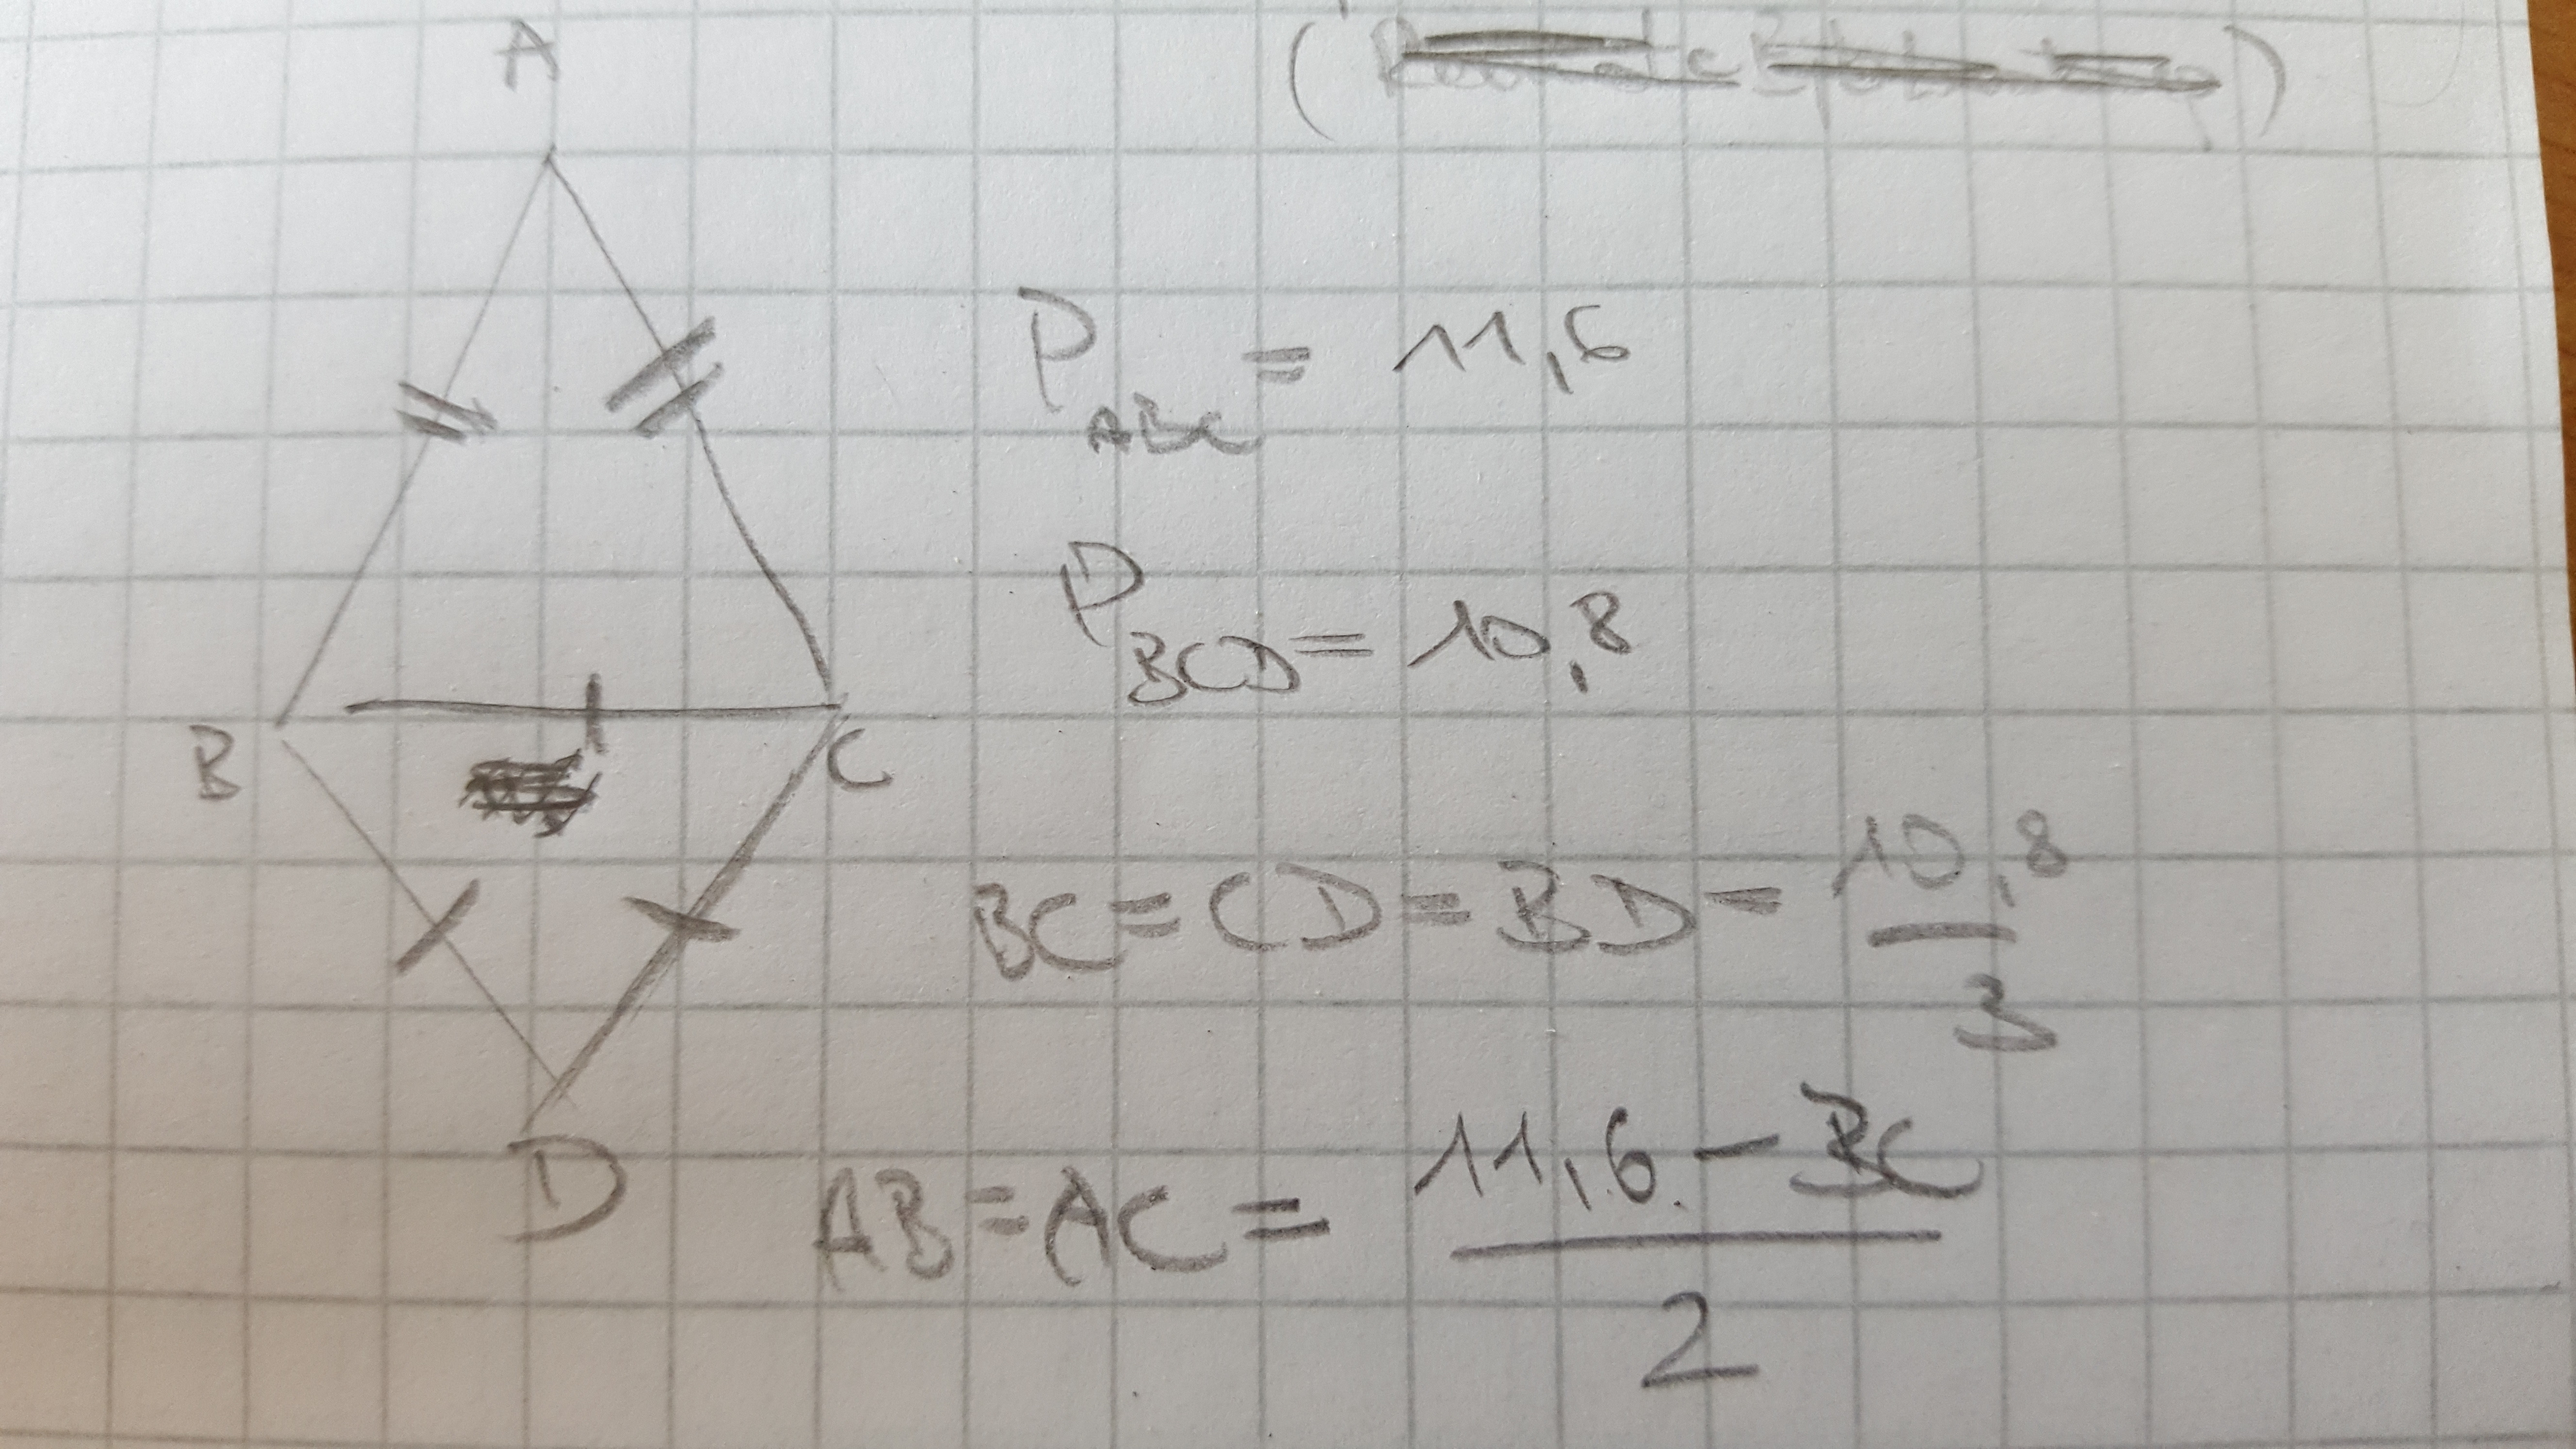 A
P_ABC = 11,6
P_BCD = 10,8
B
C
BC = CD = BD = 10,8 / 3
D
AB = AC = 11,6 - BC / 2